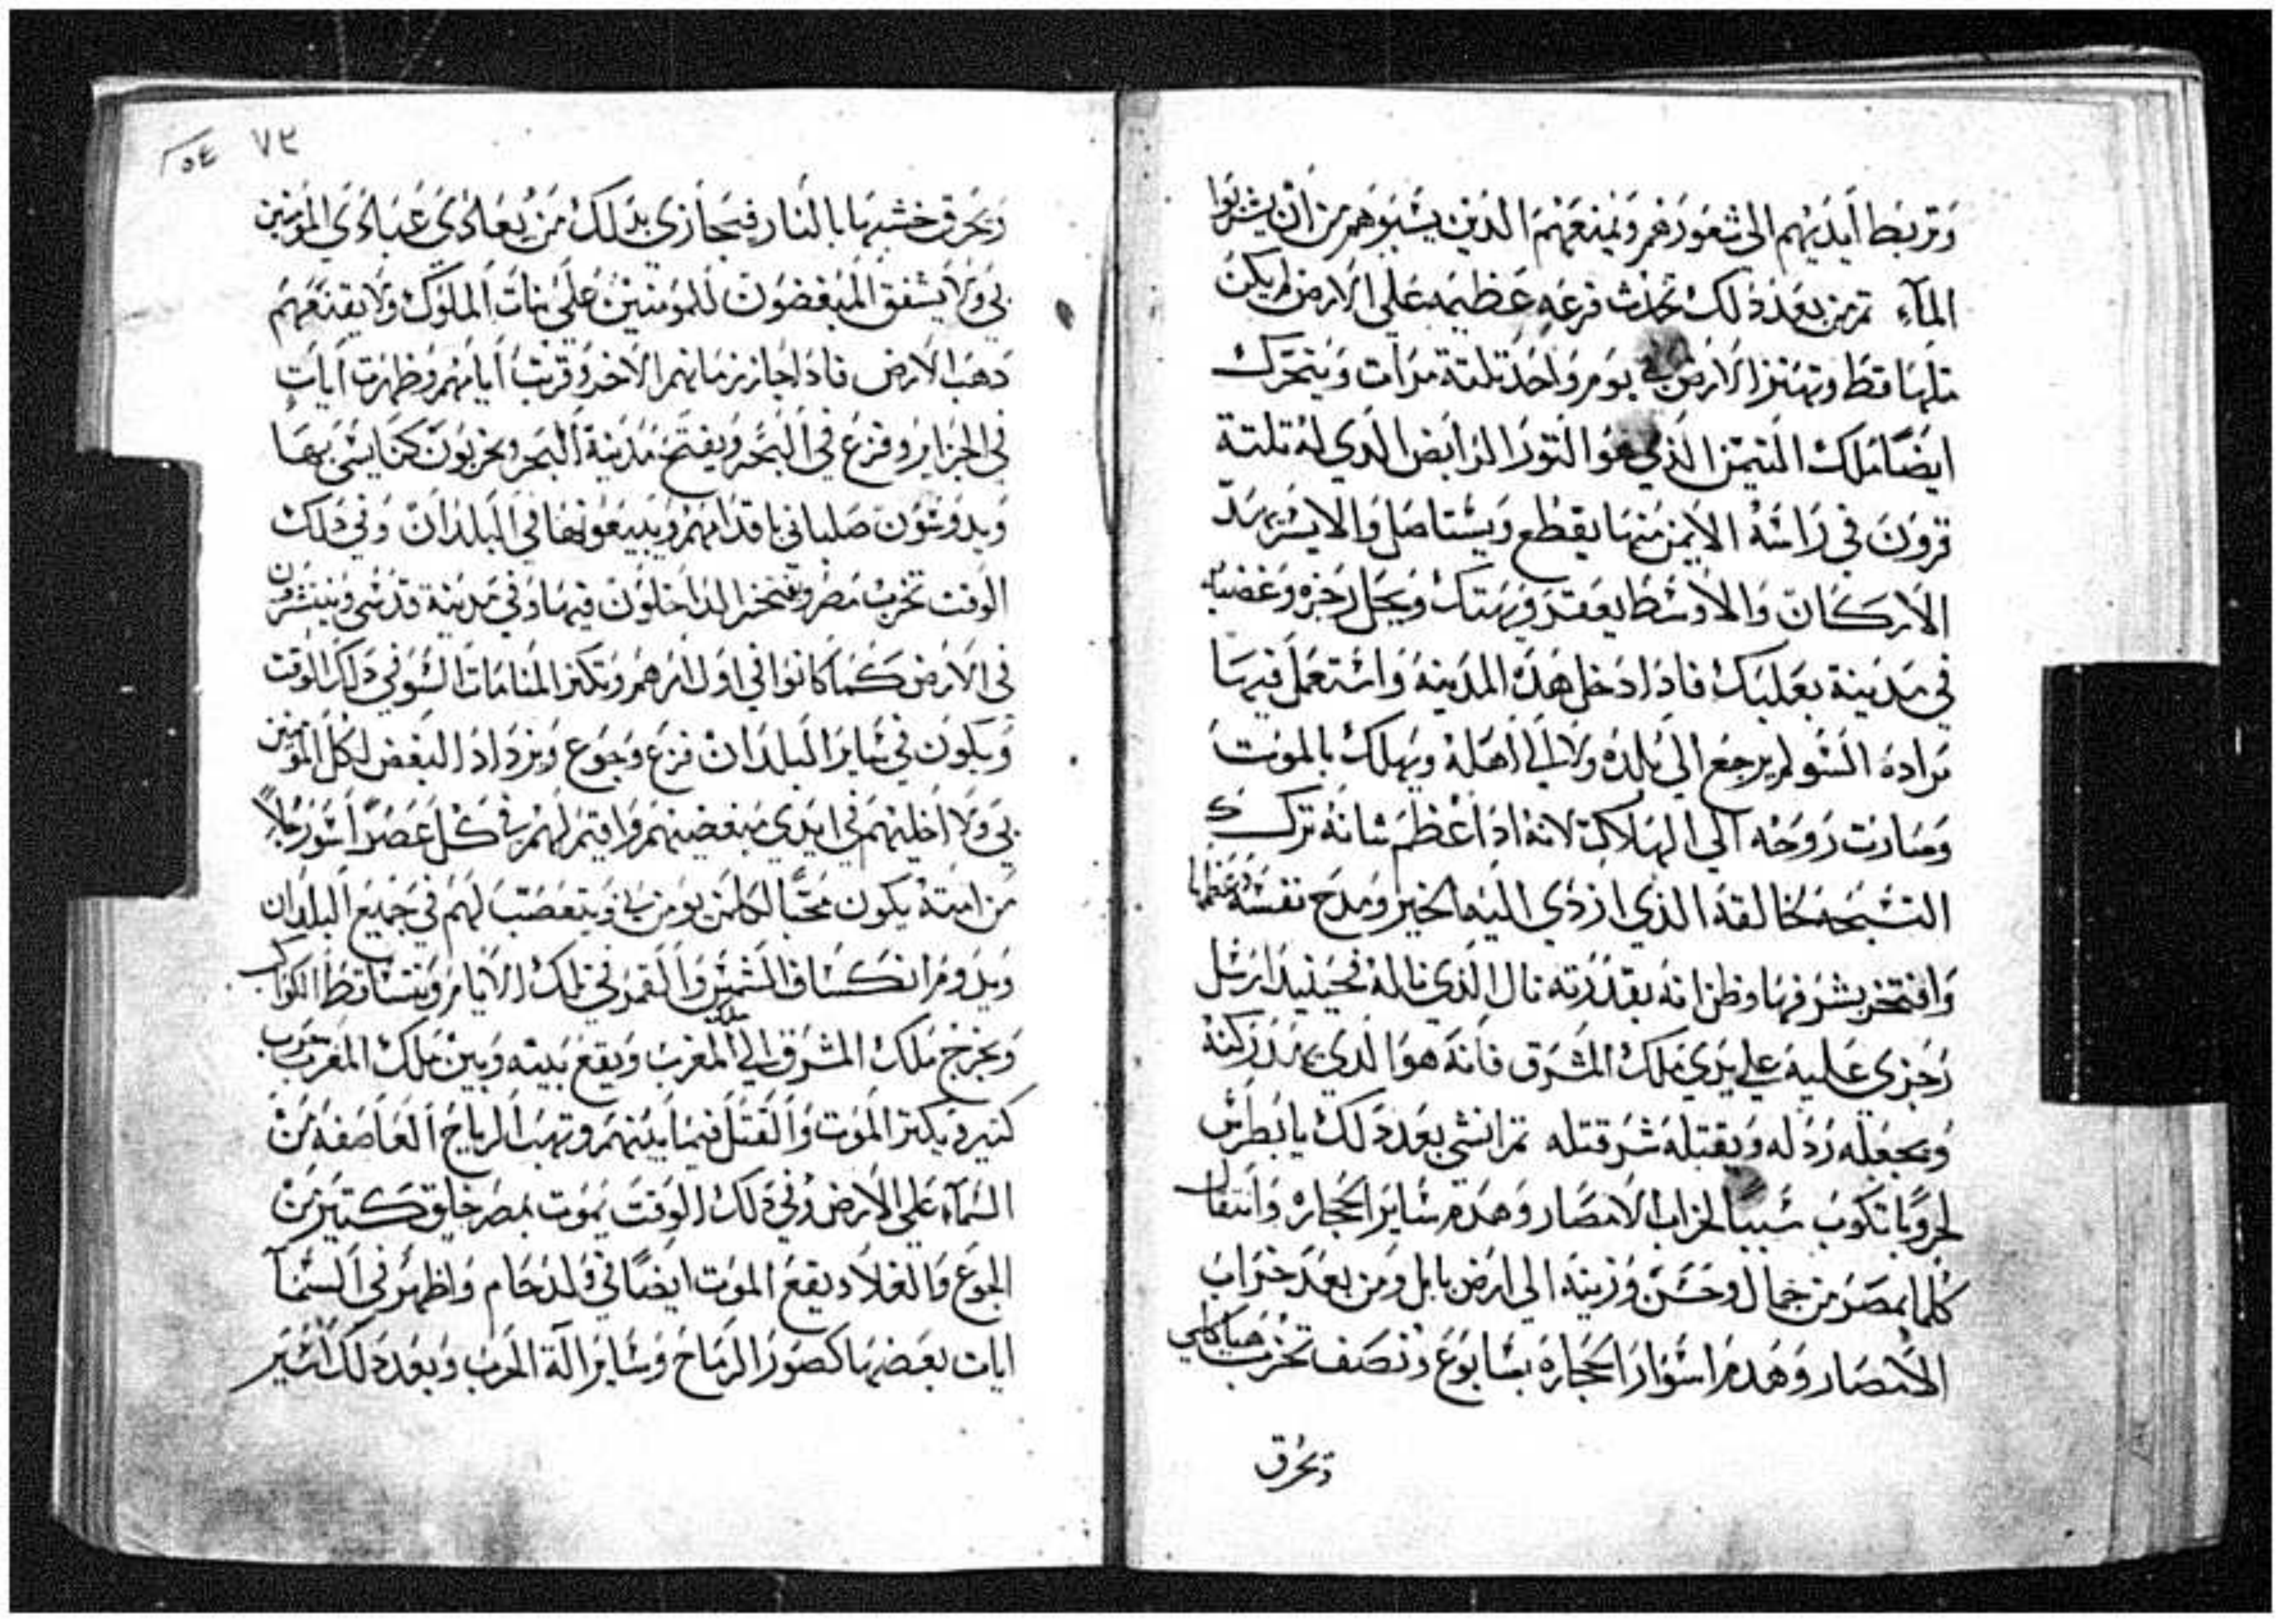 وتربط ايديهم الى شعورهم ويمنعهم الدين يسبوهم من ان يشربوا
المآء تم من بعد دلك تحدث فزعه عظيمه على الارض لم يكن
متلها قط وتهتز الارض في يوم واحد تلتة مرات ويتحرك
ايضا ملك التيمن الذي هو التور الرابض الدي له تلتة
قرون في راسه الايمن منها يقطع ويستاصل والايسر يهد
الاركان والاوسط يعقر ويهتك ويحل رجزه وغضبه
في مدينة بعلبك فادا دخل هده المدينه واستعمل فيها
مراده السو لم يرجع الي بلده ولا الي اهله ويهلك بالموت
وصارت روحه الي الهلاك لانه ادا عظم شانه ترك
التسبحه لخالقه الذي ازدي اليه الخير ومدح نفسه وعظمها
وافتخر بشرفها وظن انه بقدرته نال الذي ناله فحينيد ارسل
رجزي عليه علي يدي ملك المشرق فانه هو الدي يدركه
ويجعله ردله ويقتله شر قتله تم انشي بعد دلك يا بطرس
حروبا تكون سببا لخراب الامصار وهدم ساير الحجاره وانتقال
كلما بمصر من جمال وحسن وزينه الي ارض بابل ومن بعد خراب
الامصار وهدم اسوار الحجاره بسابوع ونصف تخرب هياكلي
وتحرق
٧٣ ٥٤
وتحرق خشبها بالنار فيجازي بدلك من يعادي عبادي المومنين
بي ولا يشفق المبغضون للمومنين علي بنات الملوك ولا يقنعهم
دهب الارض فادا جاز زمانهم الاخر وقربت ايامهم وظهرت ايات
في الجزاير وفزع في البحر ويفتح مدينة البحر ويخربون كنايسي بها
ويدوسون صلباني باقدامهم ويبيعونها في البلدان وفي دلك
الوقت تخرب مصر ويفتخر الداخلون فيها وفي مدينة قدسي وينتشرون
في الارض كما كانوا في اول امرهم وتكتر المنامات السو في دلك الوقت
ويكون في ساير البلدان فزع وجوع ويزداد البغض لكل المومنين
بي ولا اخليهم في ايدي مبغضيهم واقيم لهم في كل عصر اسور رجلا
من امته يكون محبا لكلمن يومن بي ويتعصب لهم في جميع البلدان
ويدوم انكساف الشمس والقمر في تلك الايام وتتساقط الكواكب
ويخرج ملك المشرق الي ملك المغرب ويقع بينه وبين ملك المغرب حرب
كتير ويكتر الموت والقتل فيما بينهم وتهب الرياح العاصفه من
السمآء علي الارض وفي دلك الوقت يموت بمصر خلق كتير من
الجوع والغلا ويقع الموت ايضا في ولد حام واظهر في السمآ
ايات بعضها كصور الرماح وساير الة الحرب وبعد دلك اسير